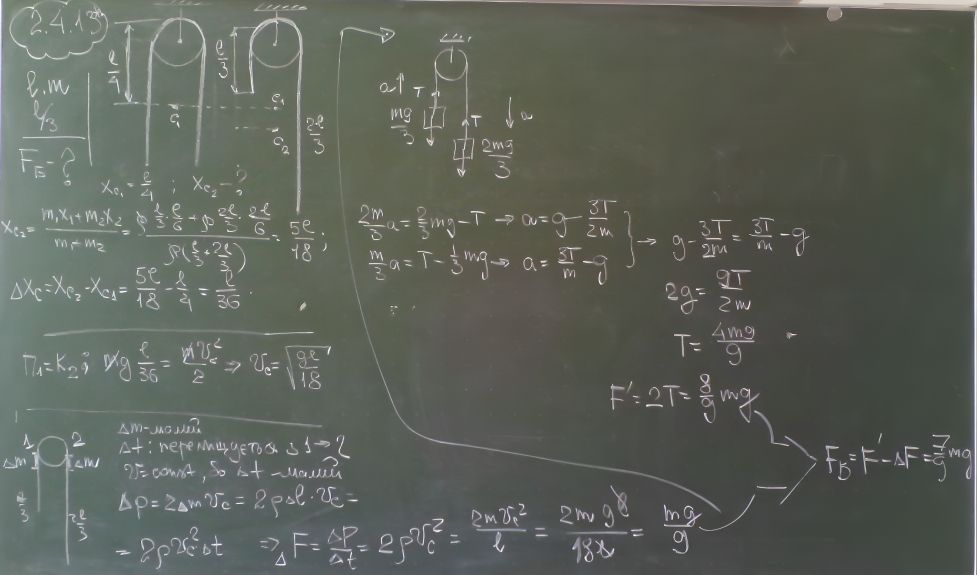 2.4.13
l, m
l/3
F_Б - ?
l/4
l/3
c₁
c₁
c₂
2l/3
X_{C1} = l/4 ; X_{C2} - ?
X_{C2} = (m₁x₁+m₂x₂)/(m₁+m₂) = (ρ l/3 · l/6 + ρ 2l/3 · 2l/6)/(ρ(l/3 + 2l/3)) = 5l/18 ;
ΔX_C = X_{C2} - X_{C1} = 5l/18 - l/4 = l/36 .
П₁ = K₂ ; mg l/36 = mV_c²/2 ⇒ V_c = √(gl/18)
1 2
Δm Δm
l/3
2l/3
Δm - малий
Δt : переміщується з 1 → 2
V = const, бо Δt - малий
Δp = 2ΔmV_c = 2ρΔl · V_c =
= 2ρV_c²Δt ⇒ ΔF = Δp/Δt = 2ρV_c² = 2mV_c²/l = 2mgl/18l = mg/9
a T
mg/3
T a
2mg/3
2m/3 a = 2/3 mg - T → a = g - 3T/2m
m/3 a = T - 1/3 mg → a = 3T/m - g
} → g - 3T/2m = 3T/m - g
2g = 9T/2m
T = 4mg/9
F' = 2T = 8/9 mg
F_Б = F' - ΔF = 7/9 mg